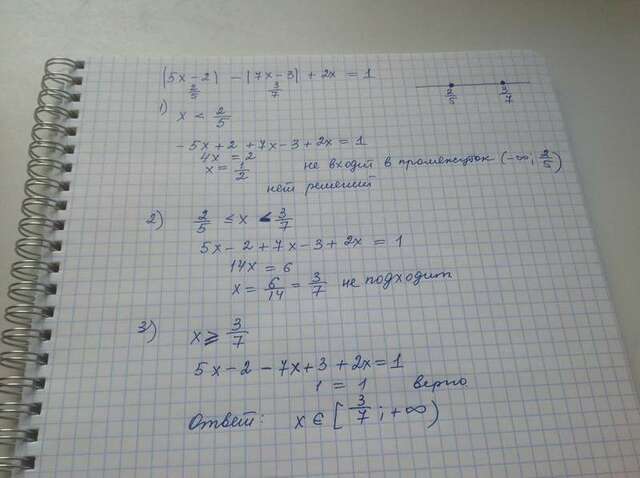 |5x-2| - |7x-3| + 2x = 1
2/5 3/7
2/5 3/7
1) x < 2/5
-5x+2+7x-3+2x=1
4x = 2
x = 1/2 не входит в промежуток (-∞; 2/5)
нет решений
2) 2/5 ≤ x < 3/7
5x-2+7x-3+2x = 1
14x = 6
x = 6/14 = 3/7 не подходит
3) x ⩾ 3/7
5x-2-7x+3+2x=1
1 = 1 верно
Ответ: x ∈ [3/7; +∞)